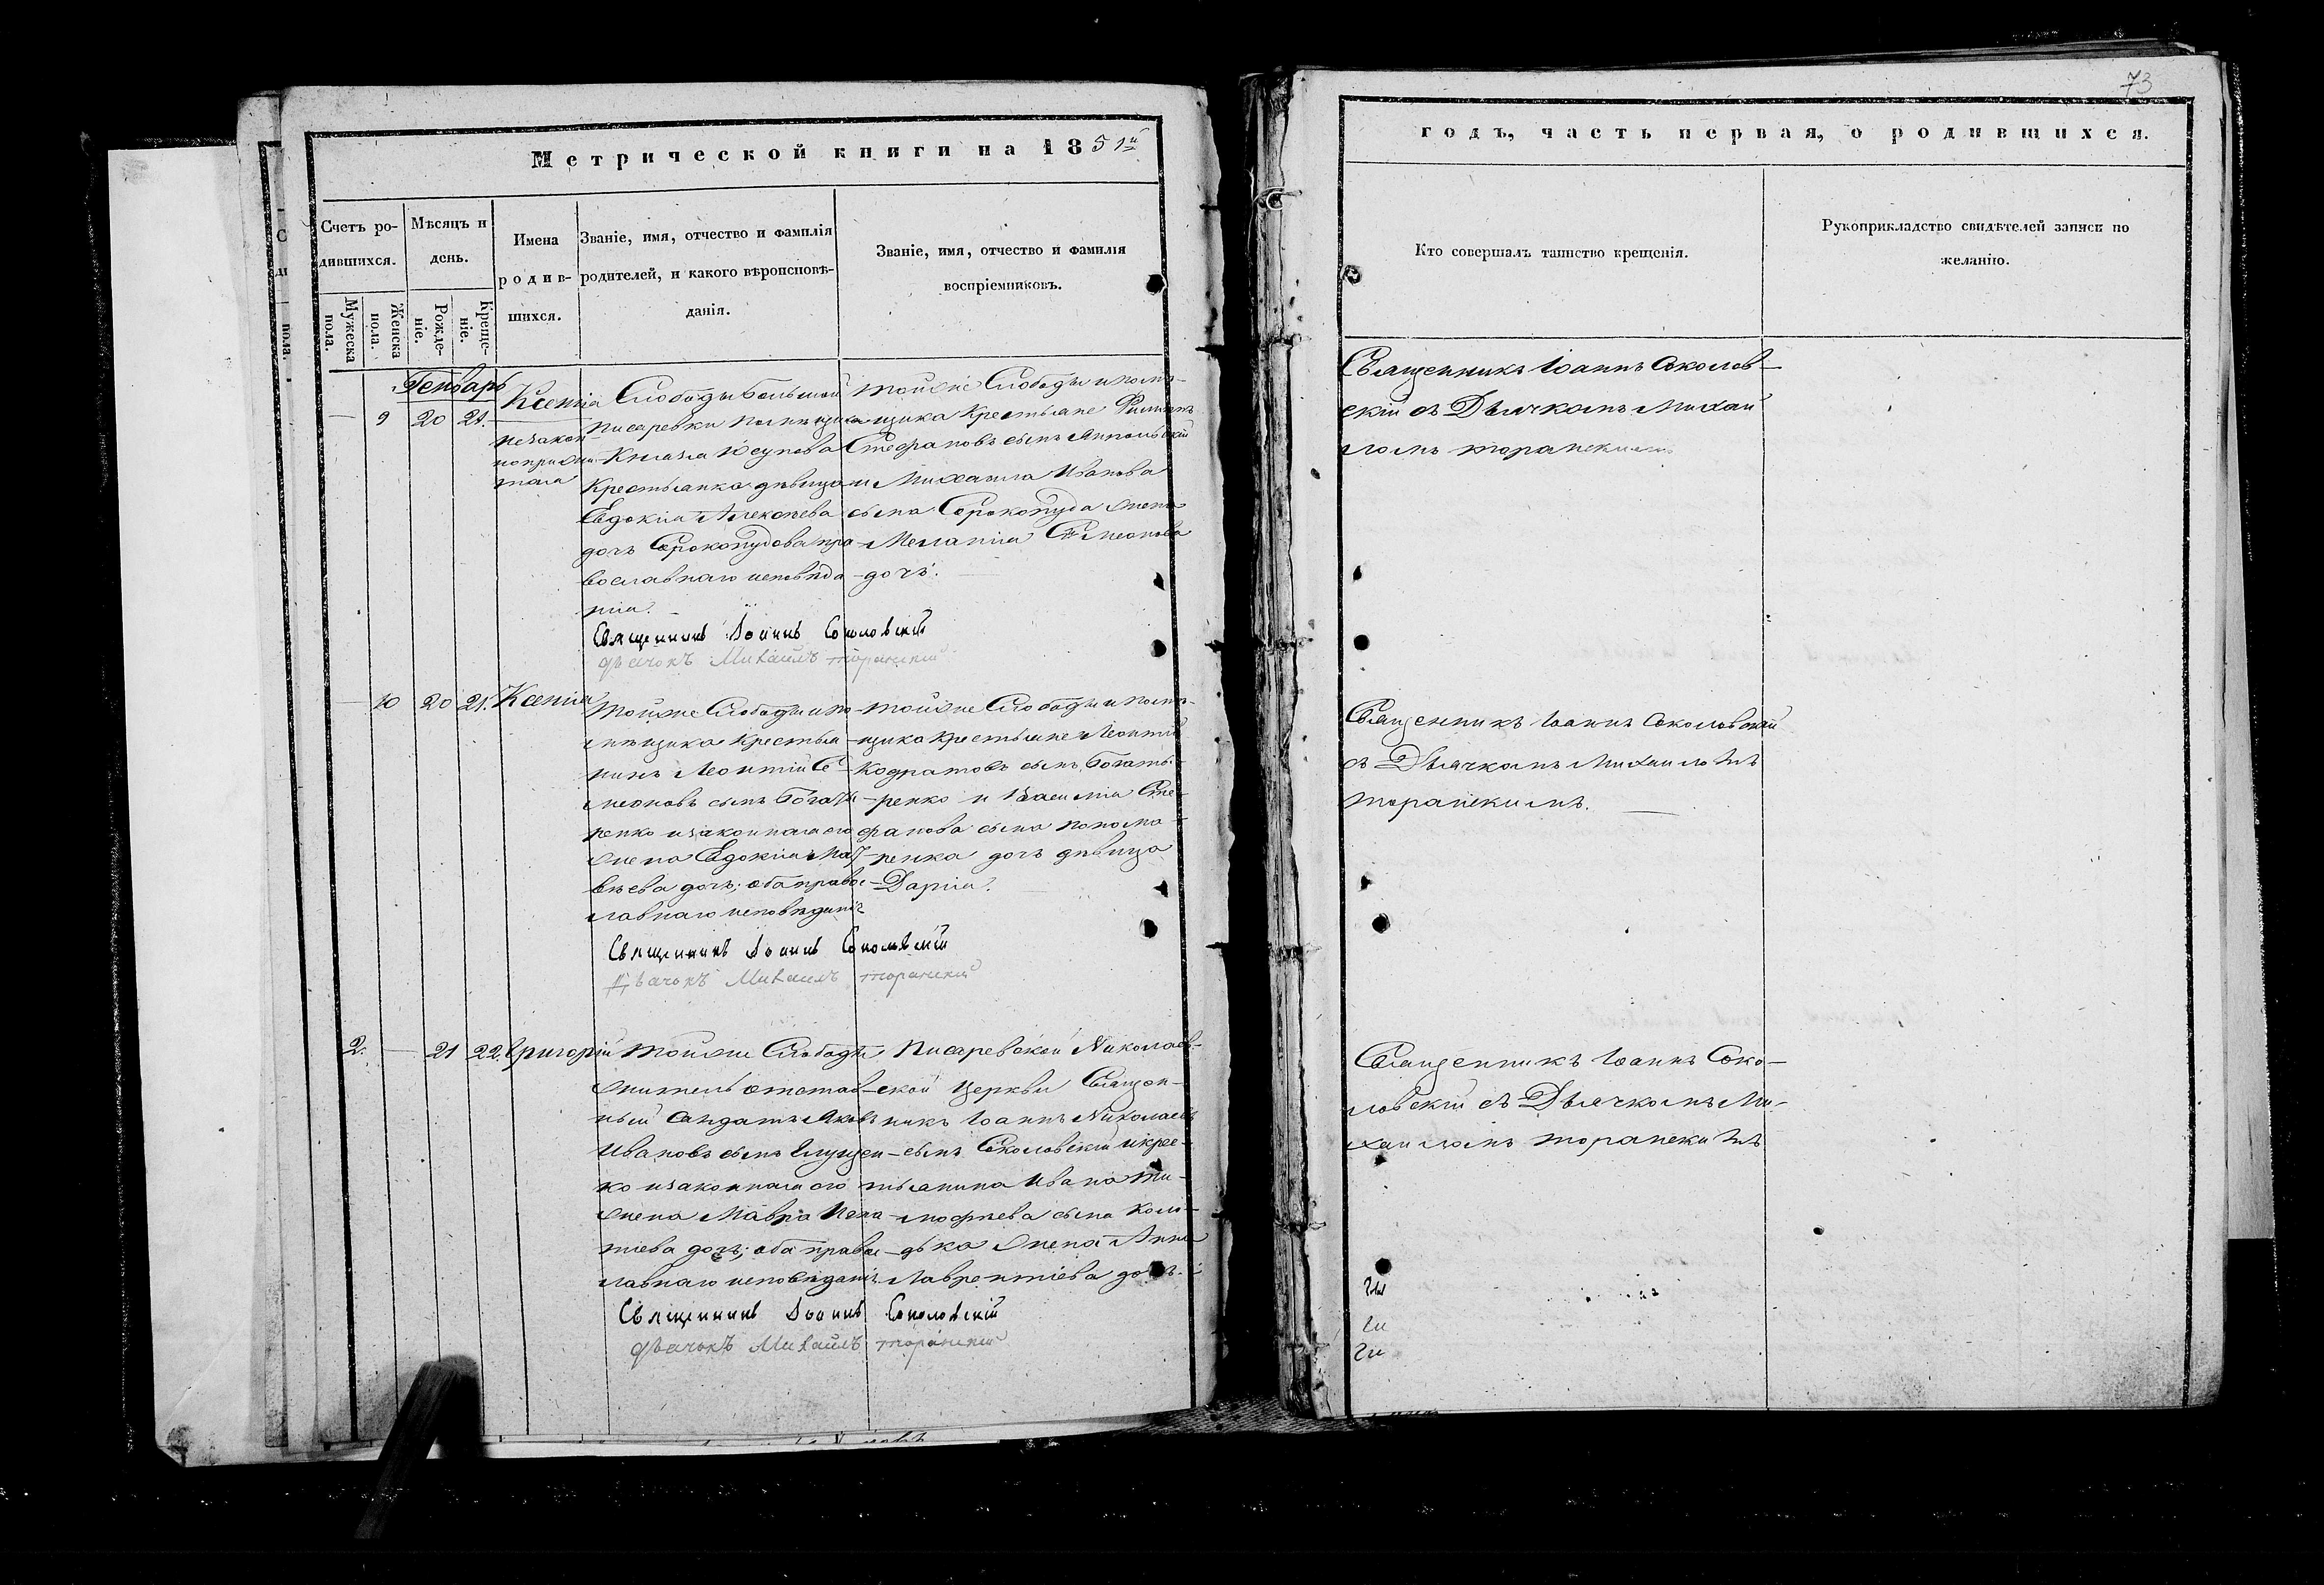 Метрической книги на 1851й
Счетъ ро-
дившихся.
Мужеска
пола.
Женска
пола.
Мѣсяцъ и
день.
Рожде-
ніе.
Креще-
ніе.
Имена
родив-
шихся.
Званіе, имя, отчество и фамилія
родителей, и какого вѣроисповѣ-
данія.
Званіе, имя, отчество и фамилія
воспріемниковъ.
Генварь
9 20 21.
Ксенія
незакон
ноприжи
тая
Слободы Большой
Писаревки помѣщика
Князя Юсупова
Крестьянка дѣвица
Евдокія Алексѣева
дочь Сорокопудова пра
вославнаго исповѣда
нія.
тойже Слободы и помѣ-
щика Крестьяне Филиппъ
Стефановъ сынъ
и Михаила Иванова
сына Сорокопуда жена
Меланія Симеонова
дочь.
Священникъ Іоаннъ Соколовскій
дьячокъ Михаилъ торанский
10 20 21. Ксенія
тойже Слободы и по-
мѣщика Крестья
нинъ Леонтій Си
меоновъ сынъ Богаты
ренко и законная его
жена Евдокія Мат
вѣева дочь; оба правос
лавнаго исповѣданія
тойже Слободы и помѣ-
щика Крестьяне Леонтій
Кодратовъ сынъ Богаты-
ренко и Василія Сте-
фанова сына Понома-
ренка дочь дѣвица
Дарія.
Священникъ Іоаннъ Соколовскій
Дьячокъ Михаилъ торанский
2. 21 22. Григорій
тойже Слободы
житель отстав
ный Солдатъ Яковъ
Ивановъ сынъ Глущен
ко и законная его
жена Мавра
тіева дочь; оба правос
лавнаго исповѣданія
Писаревской Николаев-
ской Церкви Священ-
никъ Іоаннъ Николаевъ
сынъ Соколовскій и крес-
тьянина Ивана Ти-
мофѣева сына Коло-
дька жена Анна
Лаврентіева дочь.
Священникъ Іоаннъ Соколовскій
дьячокъ Михаилъ торанский
73
годъ, часть первая, о родившихся.
Кто совершалъ таинство крещенія.
Рукоприкладство свидѣтелей записи по
желанію.
Священникъ Іоаннъ Соколов-
скій съ Дьячкомъ Михаи
ломъ торанскимъ
Священникъ Іоаннъ Соколовскій
съ Дьячкомъ Михаиломъ
торанскимъ.
Священникъ Іоаннъ Соко-
ловскій съ Дьячкомъ Ми-
хаиломъ торанскимъ